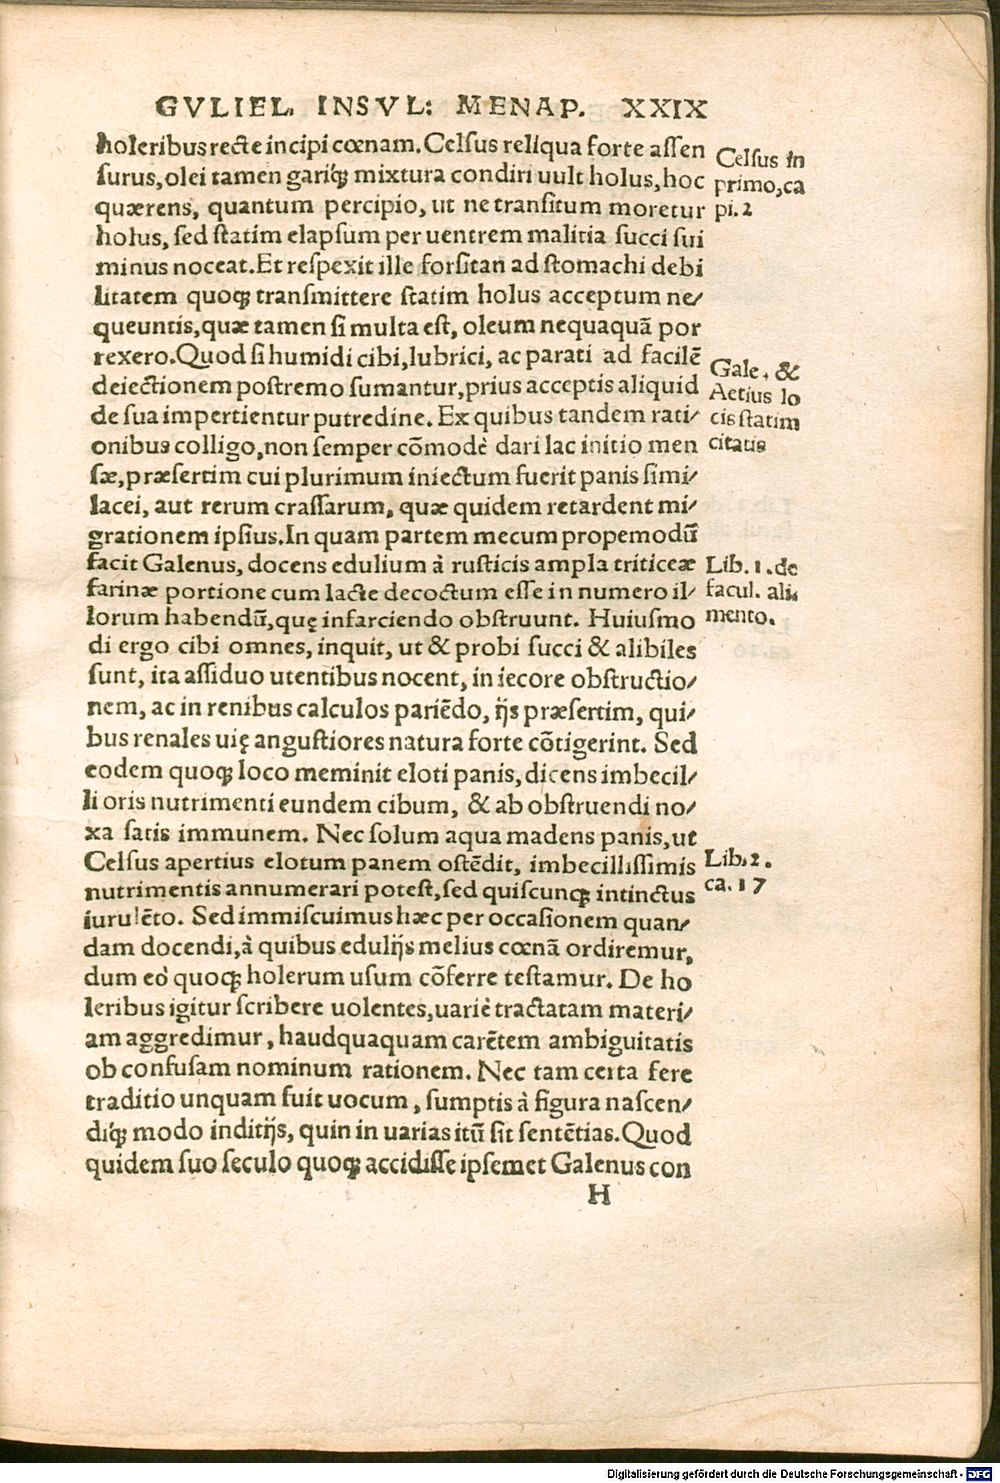 GVLIEL. INSVL: MENAP. XXIX
holeribus recte incipi cœnam. Celſus reliqua forte aſſen
ſurus, olei tamen gariq́ꝫ mixtura condiri uult holus, hoc
quærens, quantum percipio, ut ne tranſitum moretur
holus, ſed ſtatim elapſum per uentrem malitia ſucci ſui
minus noceat. Et reſpexit ille forſitan ad ſtomachi debi
litatem quoqꝫ tranſmittere ſtatim holus acceptum ne⸗
queuntis, quæ tamen ſi multa eſt, oleum nequaquã por
rexero. Quod ſi humidi cibi, lubrici, ac parati ad facilẽ
deiectionem poſtremo ſumantur, prius acceptis aliquid
de ſua impertientur putredine. Ex quibus tandem rati⸗
onibus colligo, non ſemper cõmodè dari lac initio men
ſæ, præſertim cui plurimum iniectum fuerit panis ſimi⸗
lacei, aut rerum craſſarum, quæ quidem retardent mi⸗
grationem ipſius. In quam partem mecum propemodũ
facit Galenus, docens edulium à ruſticis ampla triticeæ
farinæ portione cum lacte decoctum eſſe in numero il⸗
lorum habendũ, quę infarciendo obſtruunt. Huiuſmo
di ergo cibi omnes, inquit, ut & probi ſucci & alibiles
ſunt, ita aſſiduo utentibus nocent, in iecore obſtructio⸗
nem, ac in renibus calculos pariẽdo, ijs præſertim, qui⸗
bus renales uię anguſtiores natura forte cõtigerint. Sed
eodem quoqꝫ loco meminit eloti panis, dicens imbecil⸗
li oris nutrimenti eundem cibum, & ab obſtruendi no⸗
xa ſatis immunem. Nec ſolum aqua madens panis, ut
Celſus apertius elotum panem oſtẽdit, imbecillıſſimis
nutrimentis annumerari poteſt, ſed quiſcunqꝫ intinctus
iurulẽto. Sed immiſcuimus hæc per occaſionem quan⸗
dam docendi, à quibus edulijs melius cœnã ordiremur,
dum eò quoqꝫ holerum uſum cõferre teſtamur. De ho
leribus igitur ſcribere uolentes, uariè tractatam materi⸗
am aggredimur, haudquaquam carẽtem ambiguitatis
ob confuſam nominum rationem. Nec tam certa fere
traditio unquam fuit uocum, ſumptis à figura naſcen⸗
diq́ꝫ modo inditijs, quin in uarias itũ ſit ſentẽtias. Quod
quidem ſuo ſeculo quoqꝫ accidiſſe ipſemet Galenus con
H
Celſus in
primo, ca
pi. 2
Gale. &
Aetius lo
cis ſtatim
citatis
Lib. 1. de
facul. ali.
mento.
Lib. 2.
ca. 17
Digitalisierung gefördert durch die Deutsche Forschungsgemeinschaft - DFG